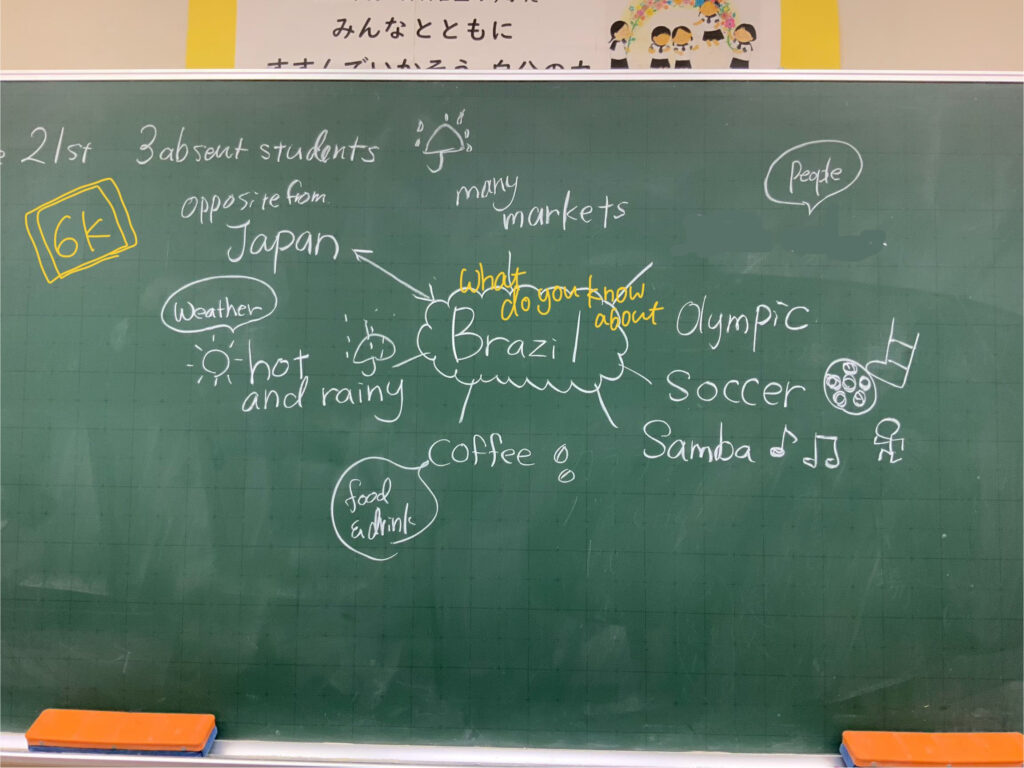 みんなとともに
21st 3 absent students
6K
opposite from
Japan
many
markets
People
What
do you know
about
Brazil
Weather
hot
and rainy
Olympic
soccer
Samba
coffee
food
& drink